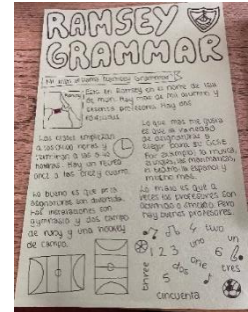 RAMSEY
GRAMMAR
Mi insti se llama "Ramsey Grammar"
Está en Ramsey en el norte de isla
de man. Hay mas de mil alumno y
sesenta profesores. Hay dos
edificios.
Las clases empiezan
a las nueve y
terminan a las
Hay un recreo
once a las once y cuarto.
Lo bueno es que la
asignaturas son divertida.
Hay instalaciones con
gymnasio y dos campo
de rugby y una hockey
de campo.
Lo que mas me gusta
es que la variedad
de asignaturas a
elegir para su GCSE
Por ejemplo, la musica,
el teatro, el español y
mucho más.
Lo malo es que a
veces los profesores son
o enfado. Pero
hay buenos profesores.
4 two
1 2 3 uno un
5 6
dos tres
one
three
cincuenta